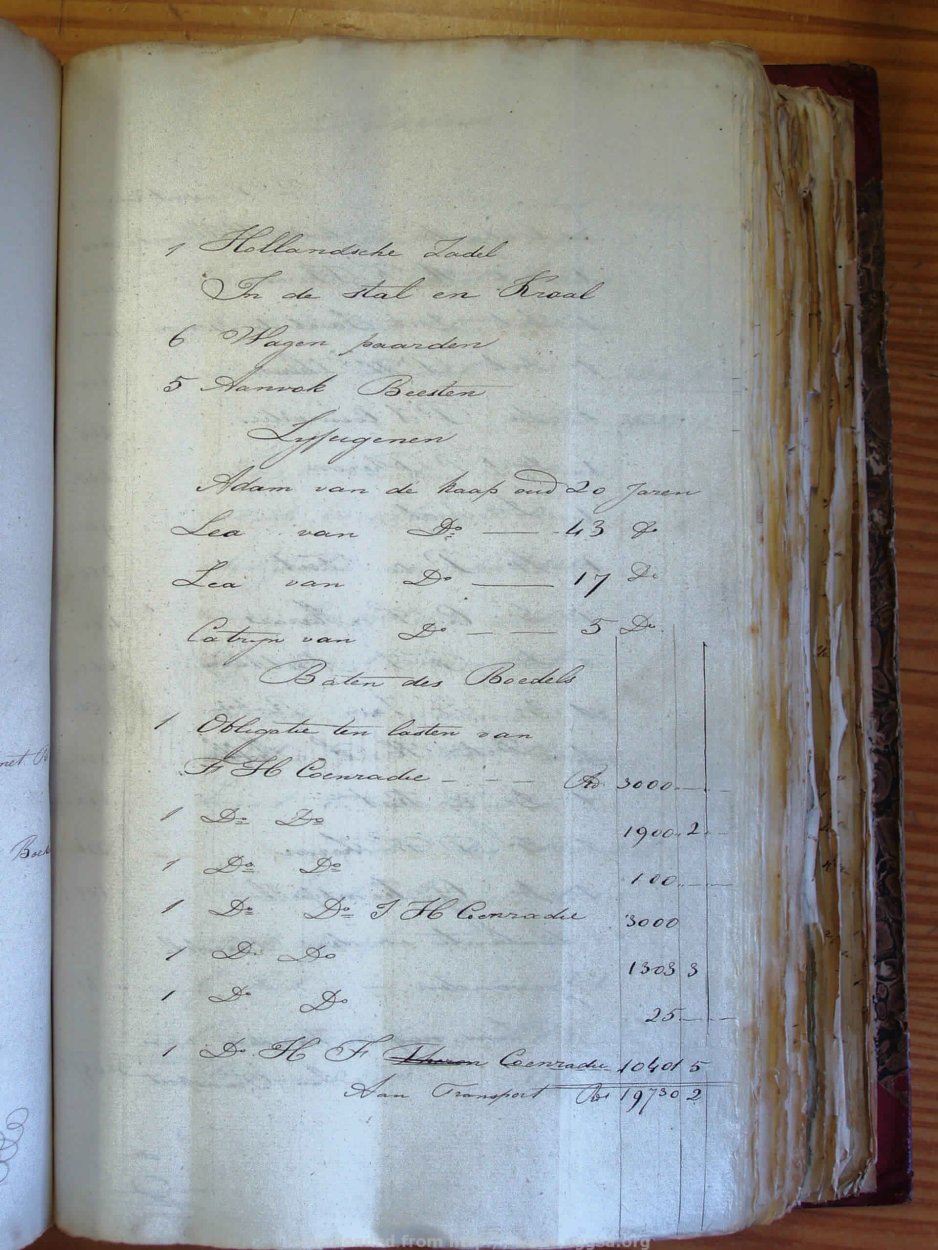 1 Hollandsche Zadel
In de stal en Kraal
6 Wagen paarden
5 Aanvok Beesten
Lyfeigenen
Adam van de kaap oud 20 Jaren
Lea van Do — 43 do
Lea van Do — 17 Do
Catryn van Do — — 5 Do
Baten des Boedels
1 Obligatie ten lasten van
F H Coenradie - - - Rds 3000
1 Do Do 1900 2
1 Do Do 100
1 Do Do J H Coenradie 3000
1 Do Do 1303 3
1 Do Do 25
1 Do H F Theron Coenradie 10401 5
Aan Transport Rds 19730 2
Boek
from